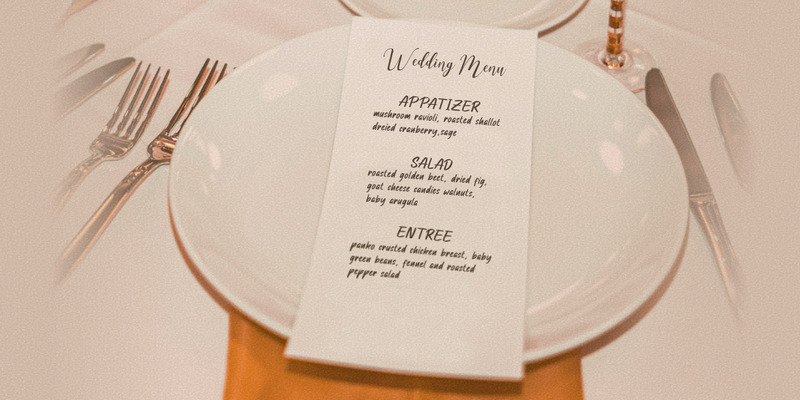 Wedding Menu
APPATIZER
mushroom ravioli, roasted shallot
dreied cranberry,sage
SALAD
roasted golden beet, dried fig,
goat cheese candies walnuts,
baby arugula
ENTREE
panko crusted chicken breast, baby
green beans, fennel and roasted
pepper salad